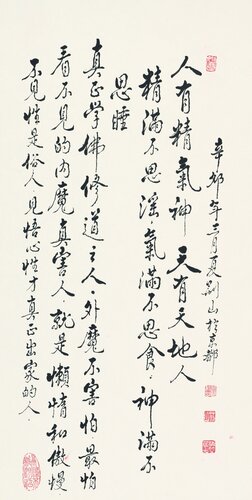 辛卯年三月夏荆山於京都
人有精氣神 天有天地人
精滿不思淫·氣滿不思食·神滿不
思睡
真正学佛修道之人·外魔不害怕·最怕
看不见的内魔真害人·就是懶惰和傲慢
不见性是俗人见悟心性才真正出家的人·